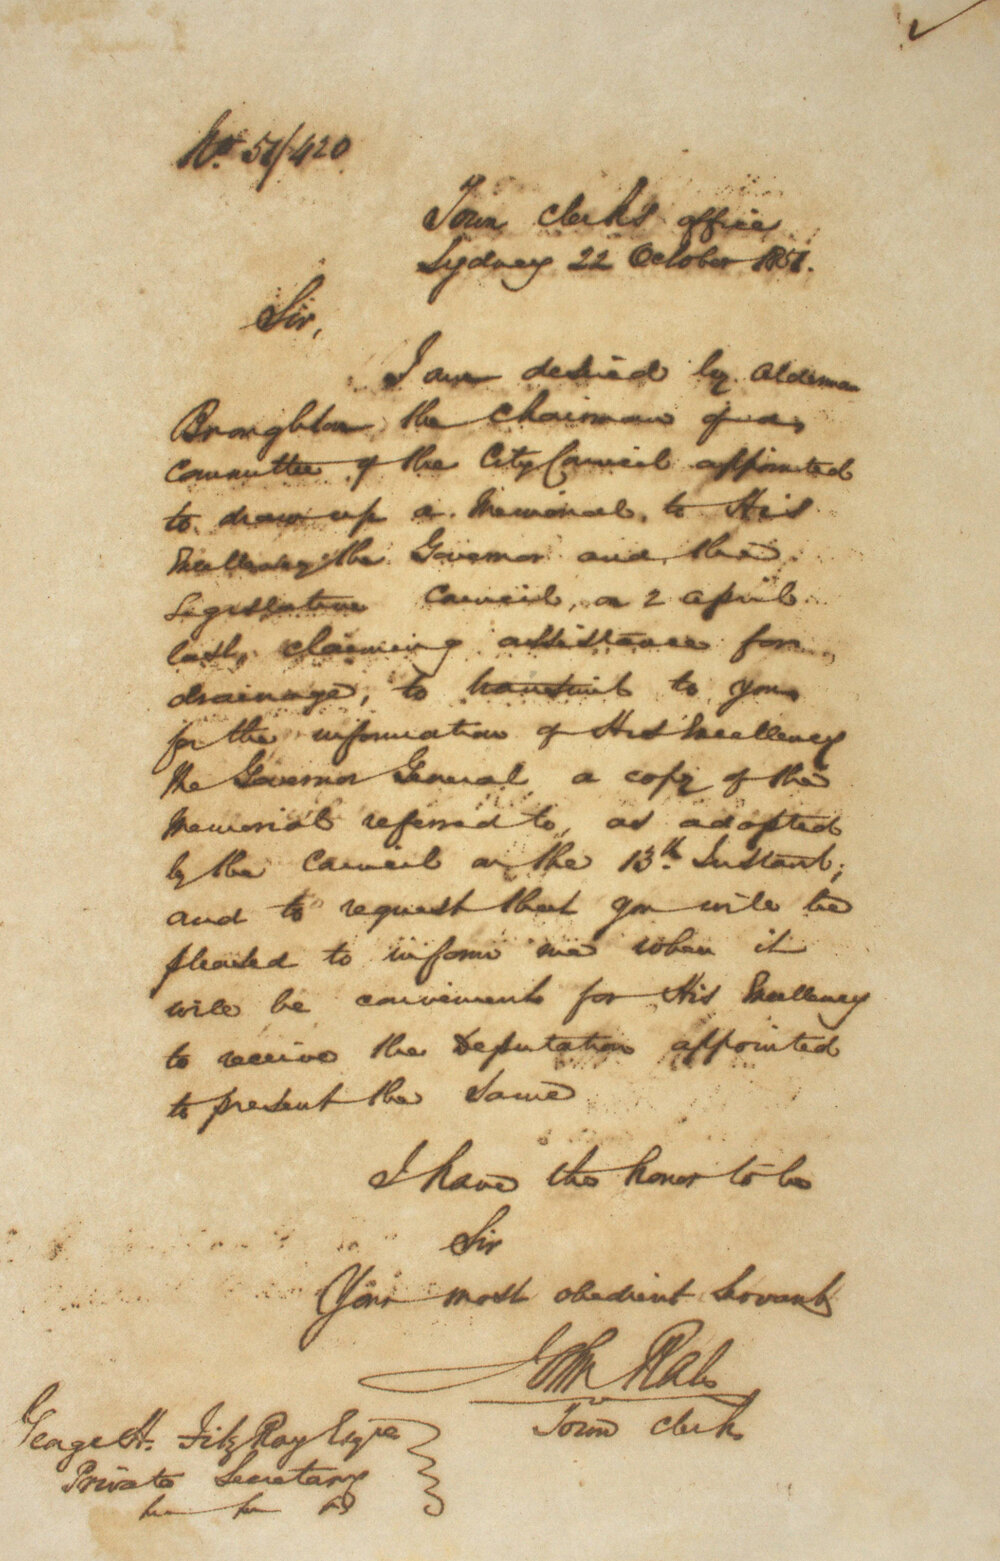 No. 51/420
Town Clerk's Office
Sydney 22 October 1851.
Sir,
I am desired by Alderman
Broughton, the Chairman of a
Committee of the City Council appointed
to draw up a Memorial, to His
Excellency the Governor and the
Legislative Council, on 2 April
last, claiming assistance for
drainage, to transmit to you
for the information of His Excellency
the Governor General, a copy of the
Memorial referred to, as adopted
by the Council on the 13th Instant;
and to request that you will be
pleased to inform me when it
will be convenient for His Excellency
to receive the Deputation appointed
to present the same
I have the honor to be
Sir
Your most obedient Servant
John Rae
Town Clerk
George H. FitzRoy Esqre
Private Secretary